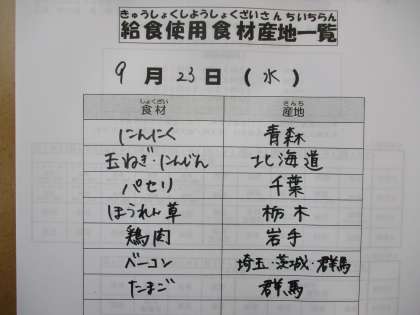 きゅうしょくしようしょくざいさんちいちらん
給食使用食材産地一覧
9月23日(水)
しょくざい さんち
食材 産地
にんにく 青森
玉ねぎ・にんじん 北海道
パセリ 千葉
ほうれん草 栃木
鶏肉 岩手
ベーコン 埼玉・茨城・群馬
たまご 群馬